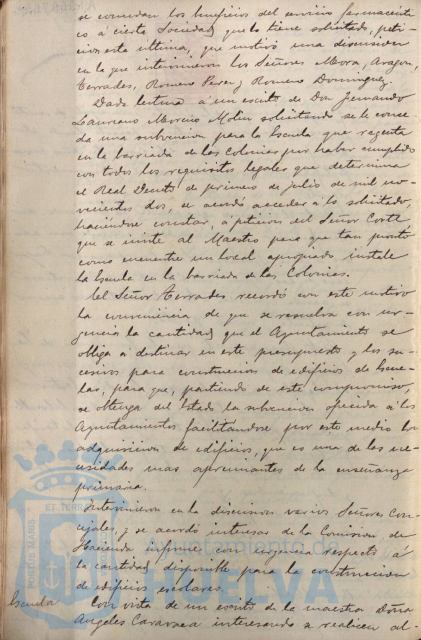 se concedan los beneficios del servicio farmacéuti
co á cierta Sociedad que lo tiene solicitado, peti-
ción esta última, que motivó una discusión
en la que intervinieron los Señores Mora, Aragón,
Terrades, Romero Perez y Romero Dominguez.
Dada lectura á un escrito de Don Fernando
Laureano Moreno Molin solicitando se le conce-
da una subvención para la Escuela que regenta
en la barriada de las Colonias por haber cumplido
con todos los requisitos legales que determina
el Real Decreto de primero de Julio de mil no-
vecientos dos, se acordó acceder á lo solicitado,
haciéndose constar, á petición del Señor Corte
que se invite al Maestro para que tan pronto
como encuentre un local apropiado instale
la Escuela en la barriada de las Colonias.
El Señor Terrades recordó con este motivo
la conveniencia de que se resuelva con ur-
gencia la cantidad que el Ayuntamiento se
obliga á destinar en este presupuesto y los su-
cesivos para construcción de edificios de Escue-
las, para que, partiendo de este compromiso,
se obtenga del Estado la subvención ofrecida á los
Ayuntamientos facilitándose por este medio la
adquisición de edificios, que es una de las ne-
cesidades mas apremiantes de la enseñanza
primaria.
Intervinieron en la discusión varios Señores Con-
cejales, y se acordó interesar de la Comisión de
Hacienda informe con urgencia respecto á
la cantidad disponible para la construcción
de edificios escolares.
Escuela Con vista de un escrito de la maestra Doña
Angeles Caravaca interesando se realicen al-
PORTUS MARIS ET TERRAE
Ayuntamiento de
HUELVA